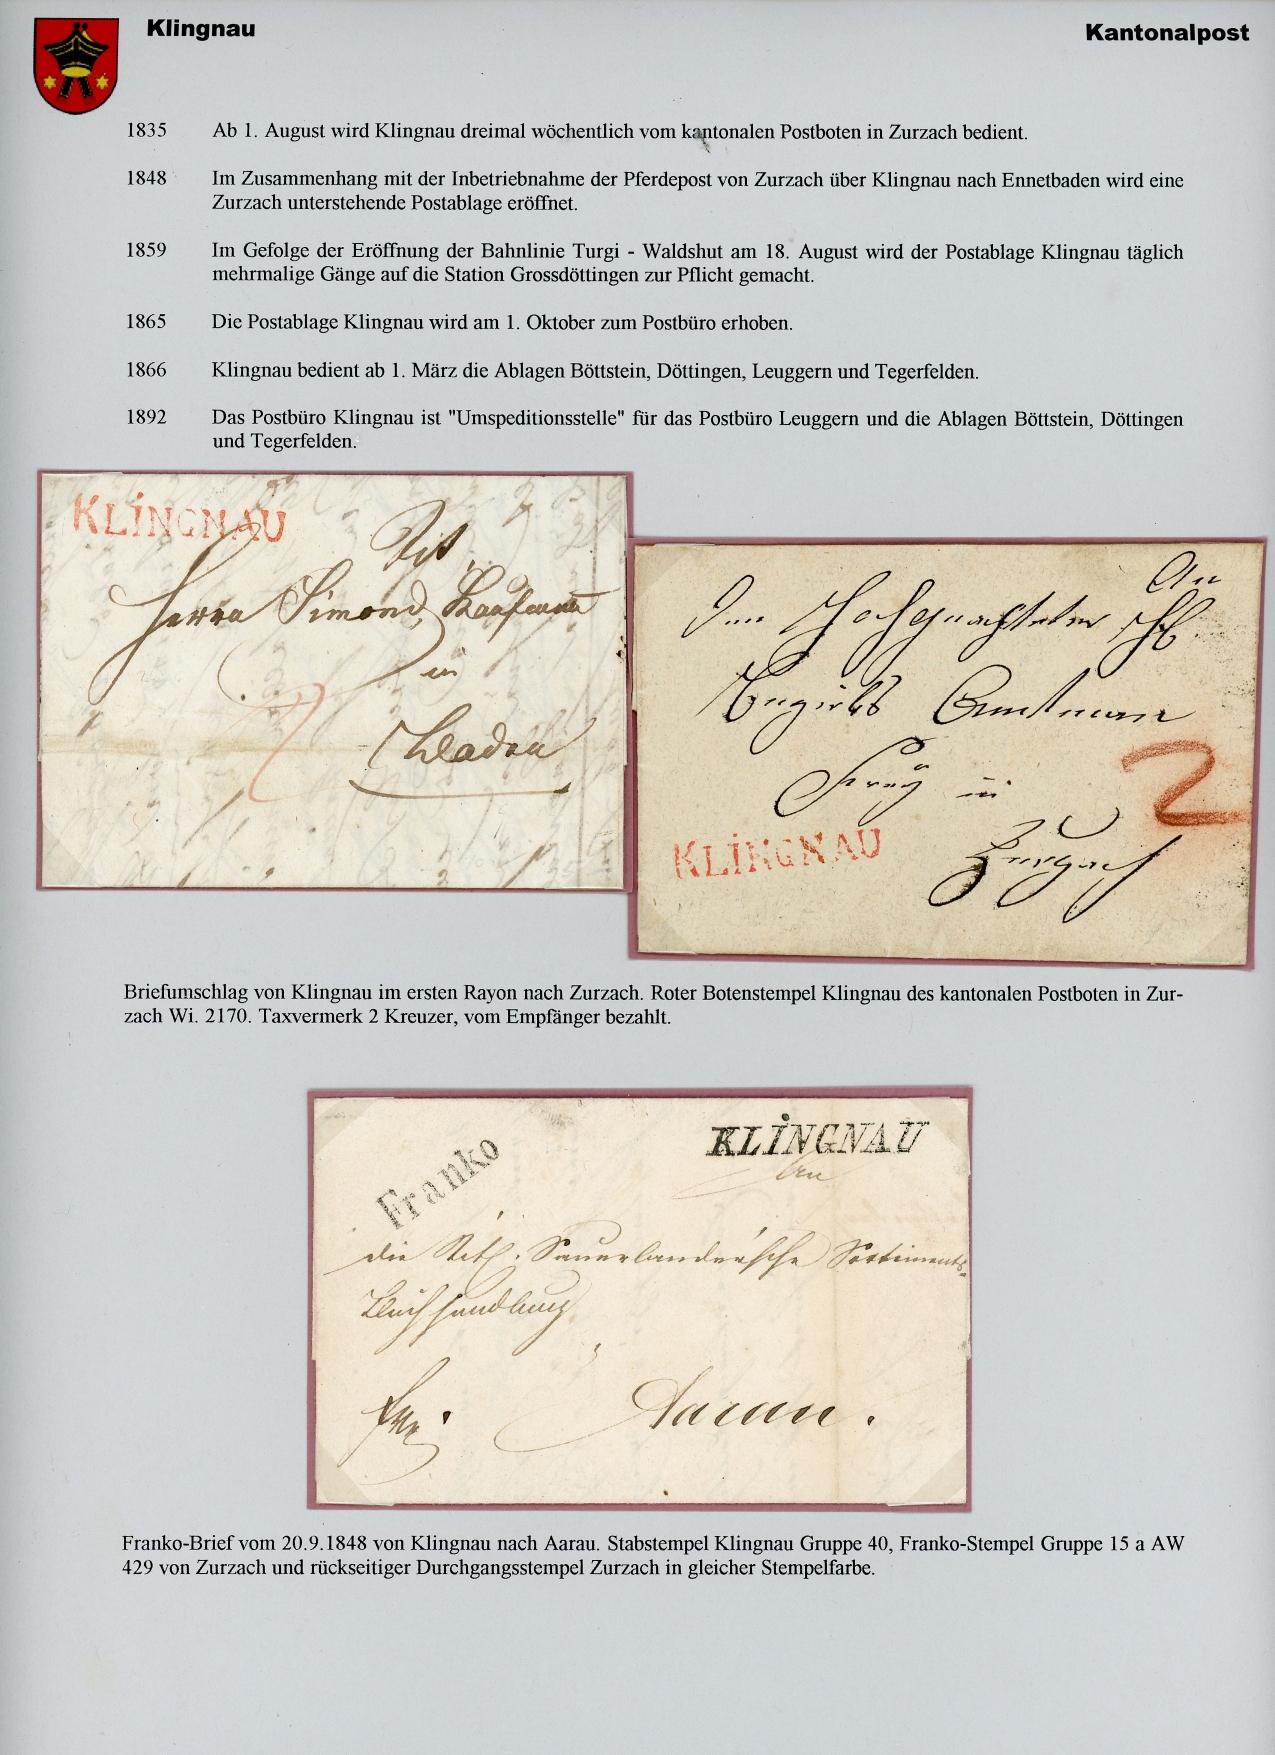 Klingnau
Kantonalpost
1835 Ab 1. August wird Klingnau dreimal wöchentlich vom kantonalen Postboten in Zurzach bedient.
1848 Im Zusammenhang mit der Inbetriebnahme der Pferdepost von Zurzach über Klingnau nach Ennetbaden wird eine
Zurzach unterstehende Postablage eröffnet.
1859 Im Gefolge der Eröffnung der Bahnlinie Turgi - Waldshut am 18. August wird der Postablage Klingnau täglich
mehrmalige Gänge auf die Station Grossdöttingen zur Pflicht gemacht.
1865 Die Postablage Klingnau wird am 1. Oktober zum Postbüro erhoben.
1866 Klingnau bedient ab 1. März die Ablagen Böttstein, Döttingen, Leuggern und Tegerfelden.
1892 Das Postbüro Klingnau ist "Umspeditionsstelle" für das Postbüro Leuggern und die Ablagen Böttstein, Döttingen
und Tegerfelden.
KLINGNAU
Herrn Simond, Kaufmann
in
Baden
An
Bezirks Amtmann
Frey in
2
KLINGNAU
Zurzach
Briefumschlag von Klingnau im ersten Rayon nach Zurzach. Roter Botenstempel Klingnau des kantonalen Postboten in Zur-
zach Wi. 2170. Taxvermerk 2 Kreuzer, vom Empfänger bezahlt.
Franko
KLINGNAU
An
die Sauerländersche Sortiments-
Buchhandlung
Aarau.
Franko-Brief vom 20.9.1848 von Klingnau nach Aarau. Stabstempel Klingnau Gruppe 40, Franko-Stempel Gruppe 15 a AW
429 von Zurzach und rückseitiger Durchgangsstempel Zurzach in gleicher Stempelfarbe.